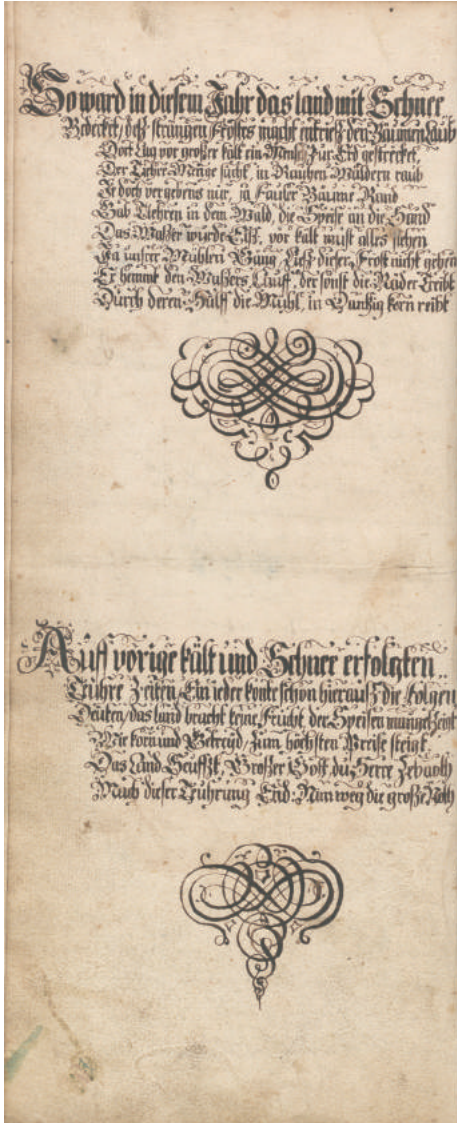 So ward in diesem Jahr das land mit Schnee
Bedecket, deß strängen Frostes macht entrieß den Bäumen Laub
Dort Lag vor großer kält ein Mensch zur Erd gestrecket,
Der Thiere Menge sucht, in Rauhen Wäldern raub
Je doch vergebens nur, ja fauler Bäume Rind
Gab Ihren in dem Wald, die Speise an die Hand
Das Waßer wurde Eiß, vor kält must alles stehen
Ja unsrer Mühlen Gang, Ließ dieser Frost nicht gehen
Er hemmt den Waßers Lauff, der sonst die Räder Treibt
Durch deren Hülff die Mühl, in korn reibt
Auff vorige kält und Schnee erfolgten
Teühre Zeiten, Ein ieder konte schon hierauß die folgen
Deuten, das land bracht keine Frucht, der Speisen mangel zeigt
Wie korn und Getreyd, zum höchsten Preise steigt
Das Land Seuffzt, Großer Gott, du Herre Zebaoth
Mach dieser Teührung End: Nim weg die große Noth